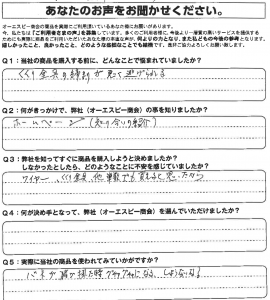 あなたのお声をお聞かせください。
オーエスピー商会の商品を実際にご利用頂いているあなた様にお願いがあります。
今、私たちは「ご利用者さまの声」を募集しています。多くのご利用者様に、今後より一層質の高いサービスを提供する
ためにも実際に商品をご利用いただいたあなた様の率直な声が、何よりの力となり、また私どもの今後の参考となります。
嬉しかったこと、良かったこと、どのような些細なことでも結構です。是非ご協力よろしくお願い致します。
Q1：当社の商品を購入する前に、どんなことで悩まれていましたか？
くくり金具の締付が甘くて逃げられる
Q2：何がきっかけで、弊社（オーエスピー商会）の事を知りましたか？
ホームページ（知り合いの紹介）
Q3：弊社を知ってすぐに商品を購入しようと決めましたか？
しなかったとしたら、どのようなことに不安を感じていましたか？
ワイヤー、くくり金具、他 単数でも買えると思ったから
Q4：何が決め手となって、弊社（オーエスピー商会）を選んでいただけましたか？
Q5：実際に当社の商品を使われてみていかがですか？
バネが